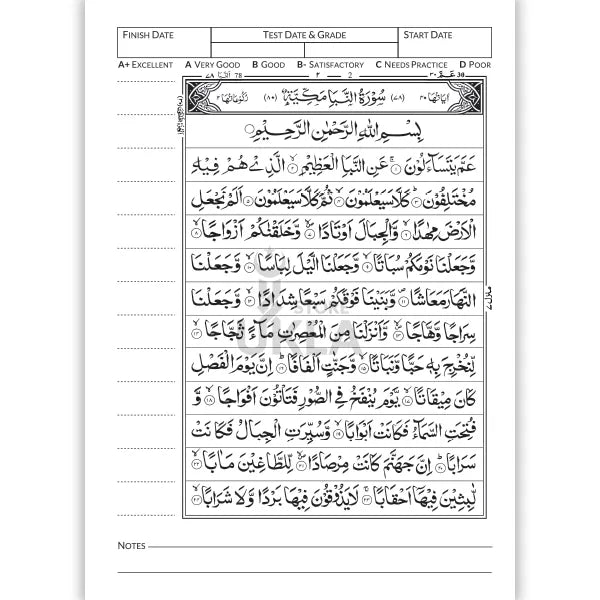 FINISH DATE
TEST DATE & GRADE
START DATE
A+ EXCELLENT A VERY GOOD B GOOD B- SATISFACTORY C NEEDS PRACTICE D POOR
النبا ٧٨ 78 ٢ 2 عم ٣٠ 30
اٰيَاتُهَا ٤٠ (٧٨) سُوْرَةُ النَّبَاِ مَكِّيَّةٌ (٨٠) رُكُوْعَاتُهَا ٢
بِسْمِ اللهِ الرَّحْمٰنِ الرَّحِيْمِ
عَمَّ يَتَسَآءَلُوْنَ ۱ عَنِ النَّبَاِ الْعَظِيْمِ ۲ الَّذِيْ هُمْ فِيْهِ
مُخْتَلِفُوْنَ ۳ كَلَّا سَيَعْلَمُوْنَ ۴ ثُمَّ كَلَّا سَيَعْلَمُوْنَ ۵ اَلَمْ نَجْعَلِ
الْاَرْضَ مِهٰدًا ۶ وَّالْجِبَالَ اَوْتَادًا ۷ وَّخَلَقْنٰكُمْ اَزْوَاجًا ۸
وَّجَعَلْنَا نَوْمَكُمْ سُبَاتًا ۹ وَّجَعَلْنَا الَّيْلَ لِبَاسًا ۱۰ وَّجَعَلْنَا
النَّهَارَ مَعَاشًا ۱۱ وَّبَنَيْنَا فَوْقَكُمْ سَبْعًا شِدَادًا ۱۲ وَّجَعَلْنَا
سِرَاجًا وَّهَّاجًا ۱۳ وَّاَنْزَلْنَا مِنَ الْمُعْصِرٰتِ مَآءً ثَجَّاجًا ۱۴
لِّنُخْرِجَ بِهٖ حَبًّا وَّنَبَاتًا ۱۵ وَّجَنّٰتٍ اَلْفَافًا ۱۶ اِنَّ يَوْمَ الْفَصْلِ
كَانَ مِيْقَاتًا ۱۷ يَّوْمَ يُنْفَخُ فِي الصُّوْرِ فَتَاْتُوْنَ اَفْوَاجًا ۱۸
وَّفُتِحَتِ السَّمَآءُ فَكَانَتْ اَبْوَابًا ۱۹ وَّسُيِّرَتِ الْجِبَالُ فَكَانَتْ
سَرَابًا ۲۰ اِنَّ جَهَنَّمَ كَانَتْ مِرْصَادًا ۲۱ لِّلطَّاغِيْنَ مَاٰبًا ۲۲
لّٰبِثِيْنَ فِيْهَآ اَحْقَابًا ۲۳ لَا يَذُوْقُوْنَ فِيْهَا بَرْدًا وَّلَا شَرَابًا ۲۴
STORE
UKEA
NOTES